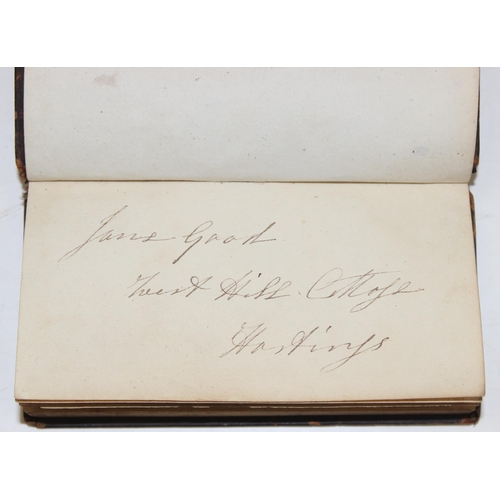 Jane Good
West Hill Cottage
Hastings